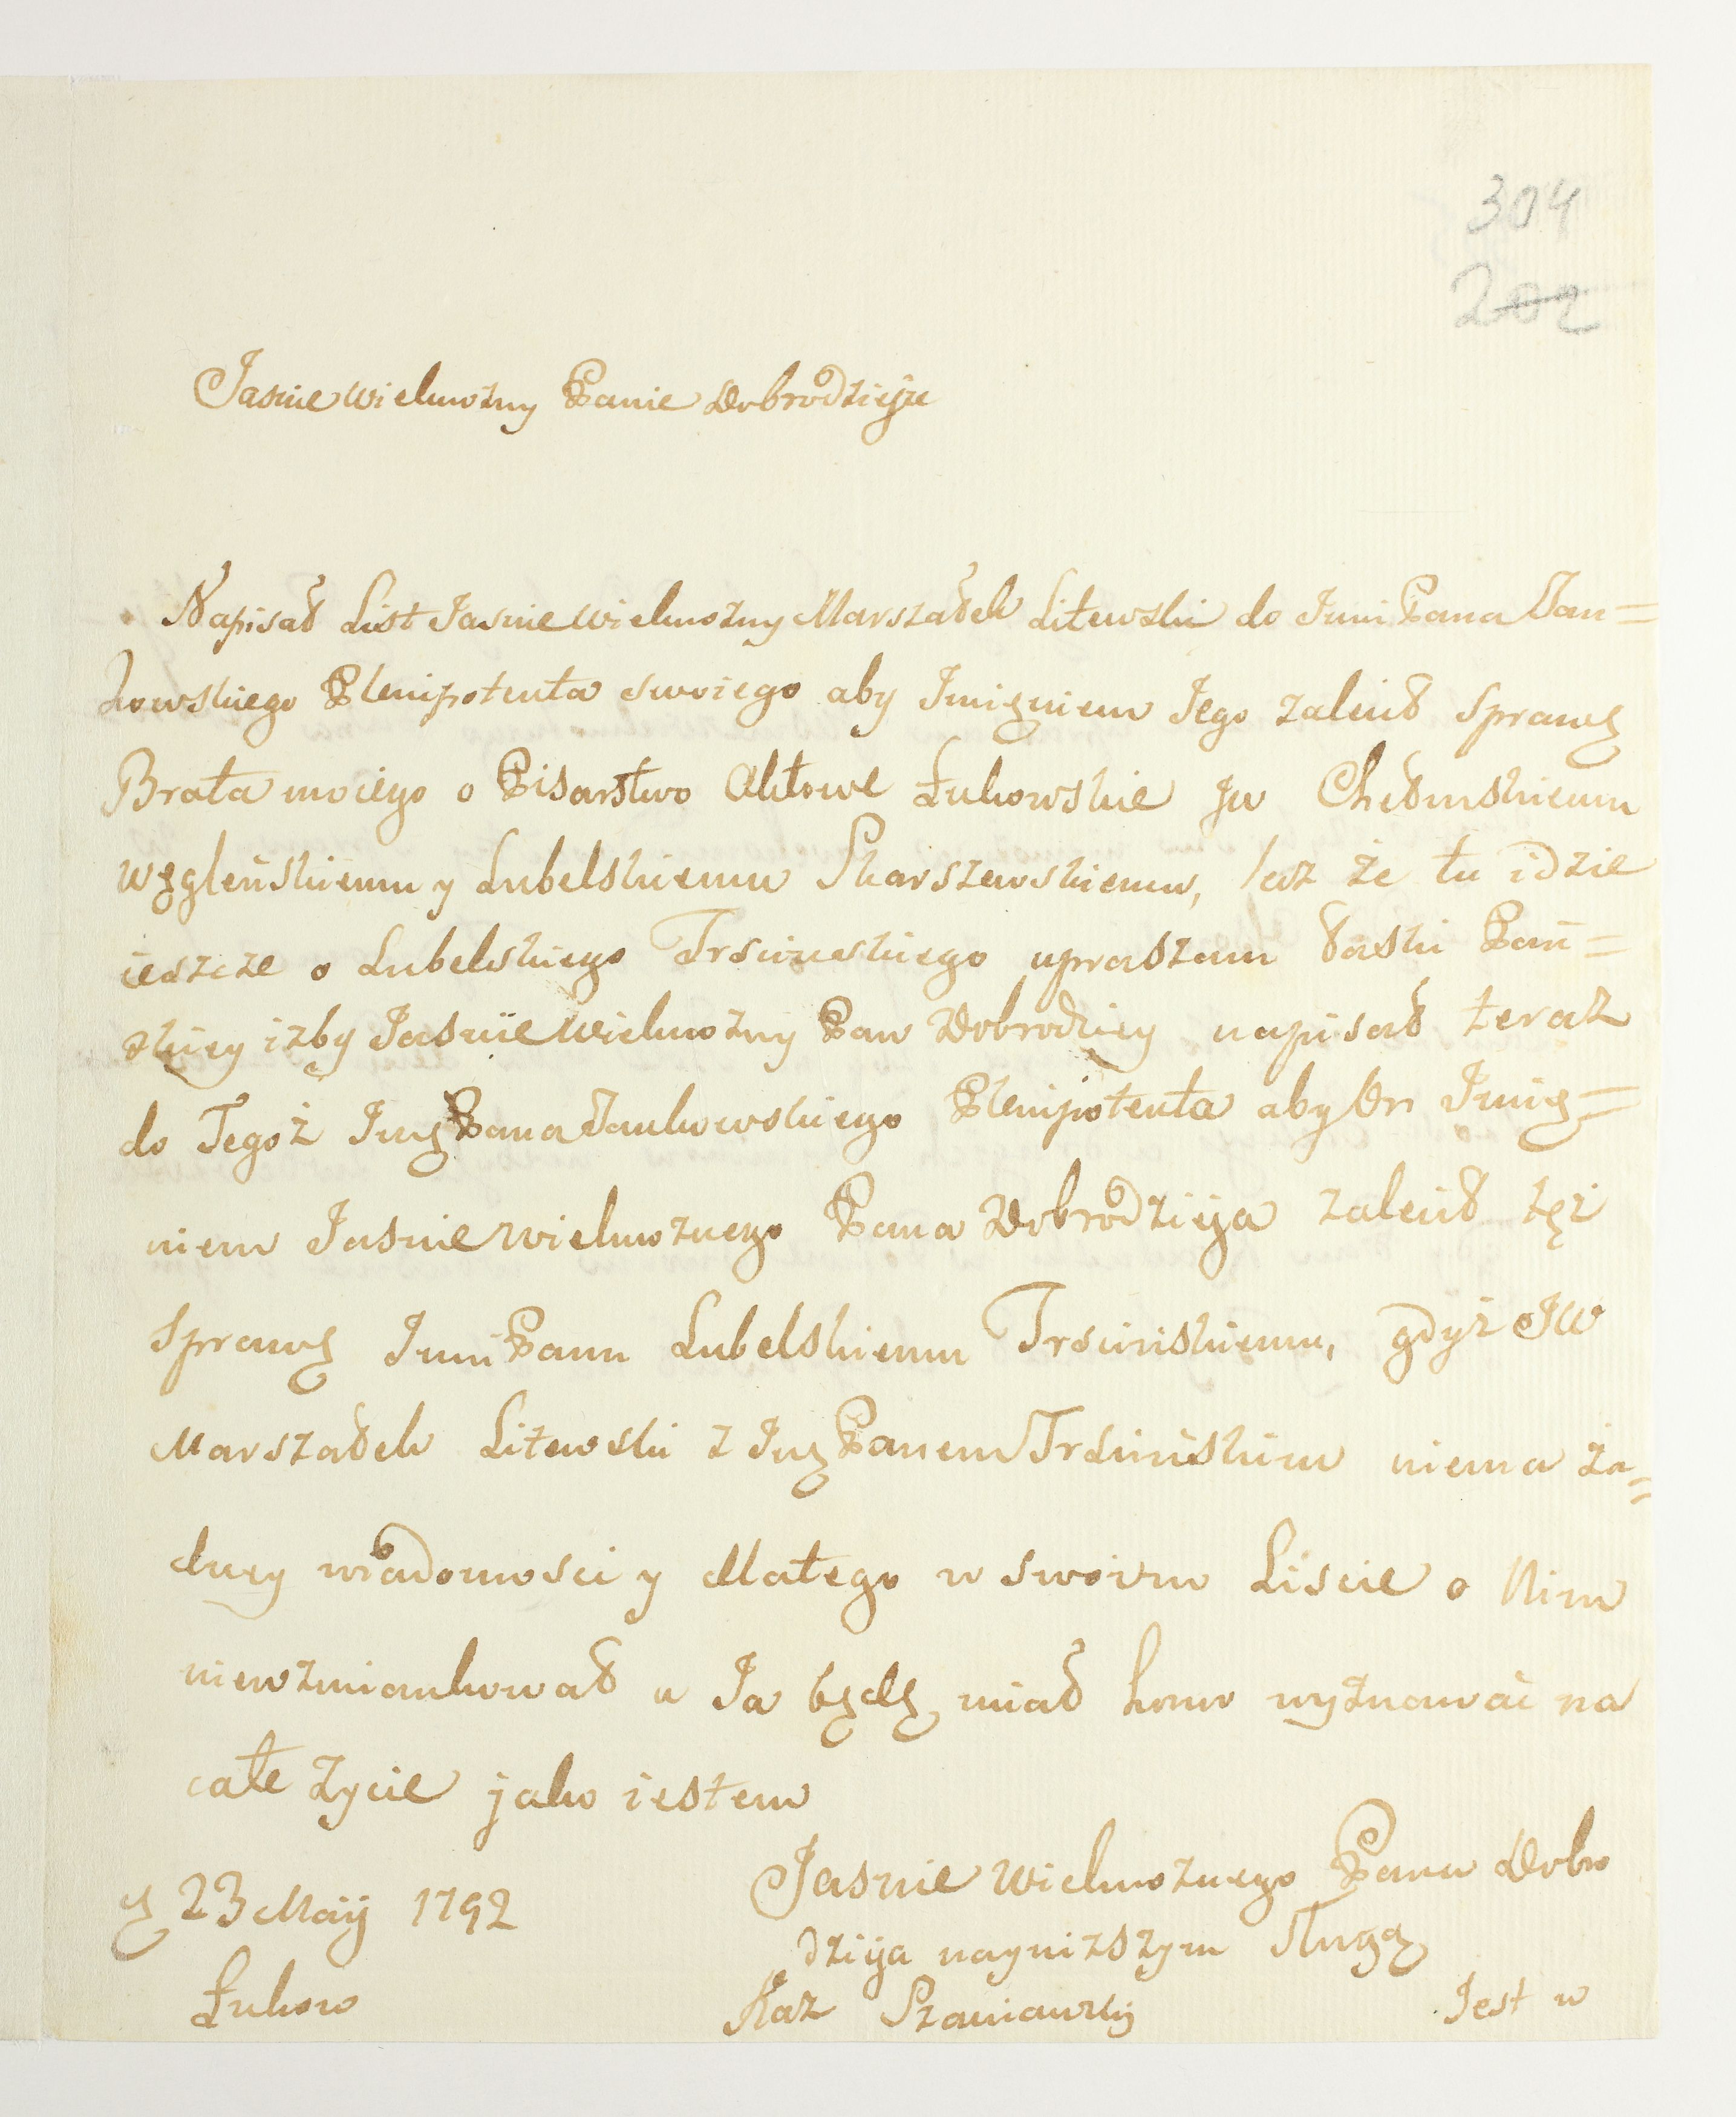 304
202
Jasnie wielmożny Panie Dobrodzieju
Napisał List Jasnie Wielmożny Marszałek Litewski do Jmci Pana Jan=
kowskiego Plenipotenta swoiego aby Jmięniem Jego zalecił Sprawę
Brata moiego o Pisarstwo Aktowe Łukowskie JW Chełmskiemu
Węgleńskiemu y Lubelskiemu Skarszewskiemu, lecz że tu idzie
ieszcze o Lubelskiego Trscinskiego upraszam łaski Pań=
skiey izby Jasnie Wielmożny Pan Dobrodziey napisał teraz
do Tegoż Jmę Pana Jankowskiego Plenipotenta aby On Jmię=
niem Jasnie wielmożnego Pana Dobrodzieja zalecił tęż
Sprawę Jmci Panu Lubelskiemu Trscinskiemu, gdyż JW
Marszałek Litewski z Jmę Panem Trscińskim niema ża=
dney wiadomosci y dlatego w swoim Liscie o Nim
niewzmiankował a Ja będę miał honor wyznawać na
całe życie jako iestem
Jasnie Wielmożnego Pana Dobro
dzieja nayniższym Sługą
23 Maij 1792
Łukow
Kaz Szaniawski
Jest w